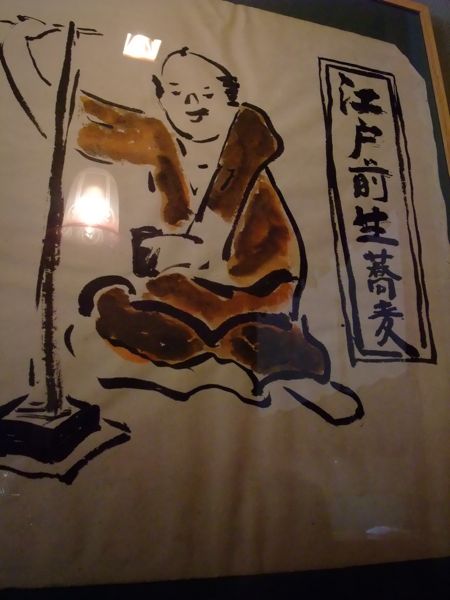 江戸前生蕎麦